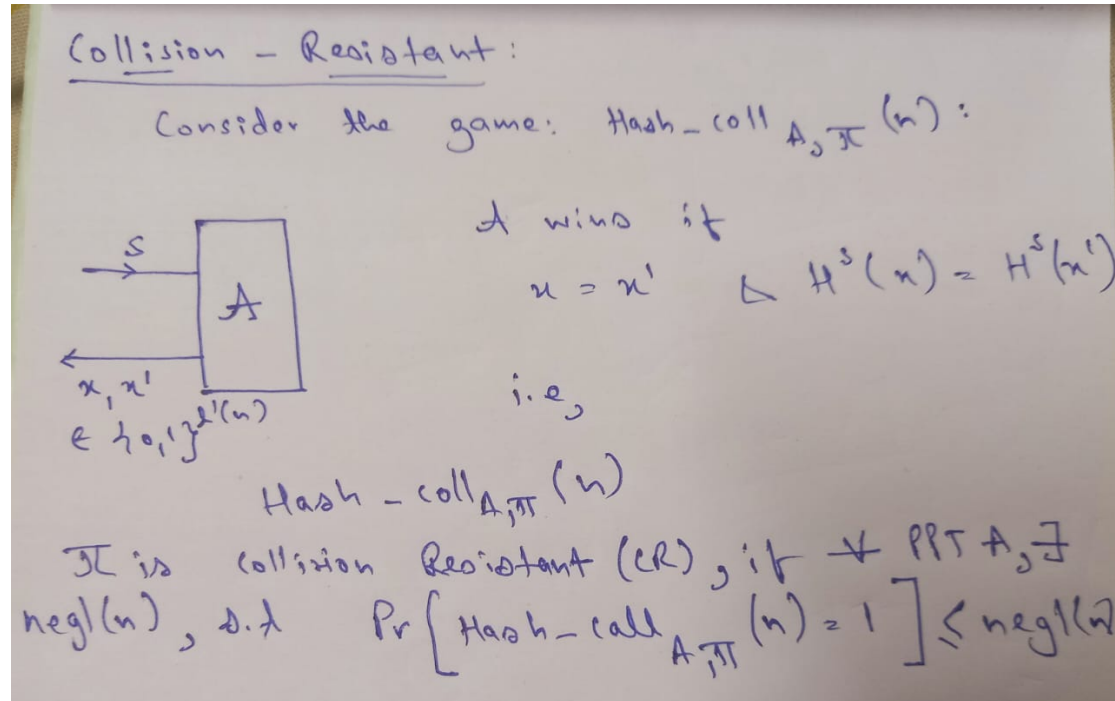 Collision - Resistant:
Consider the game: Hash-coll A,π (n):
A wins if
x = x' & H^s(x) = H^s(x')
S
A
x, x'
∈ {0,1}^l'(n)
i.e,
Hash-coll A,π (n)
π is collision Resistant (CR), if ∀ PPT A, ∃
negl(n), s.t Pr[Hash-call A,π (n) = 1] ≤ negl(n)